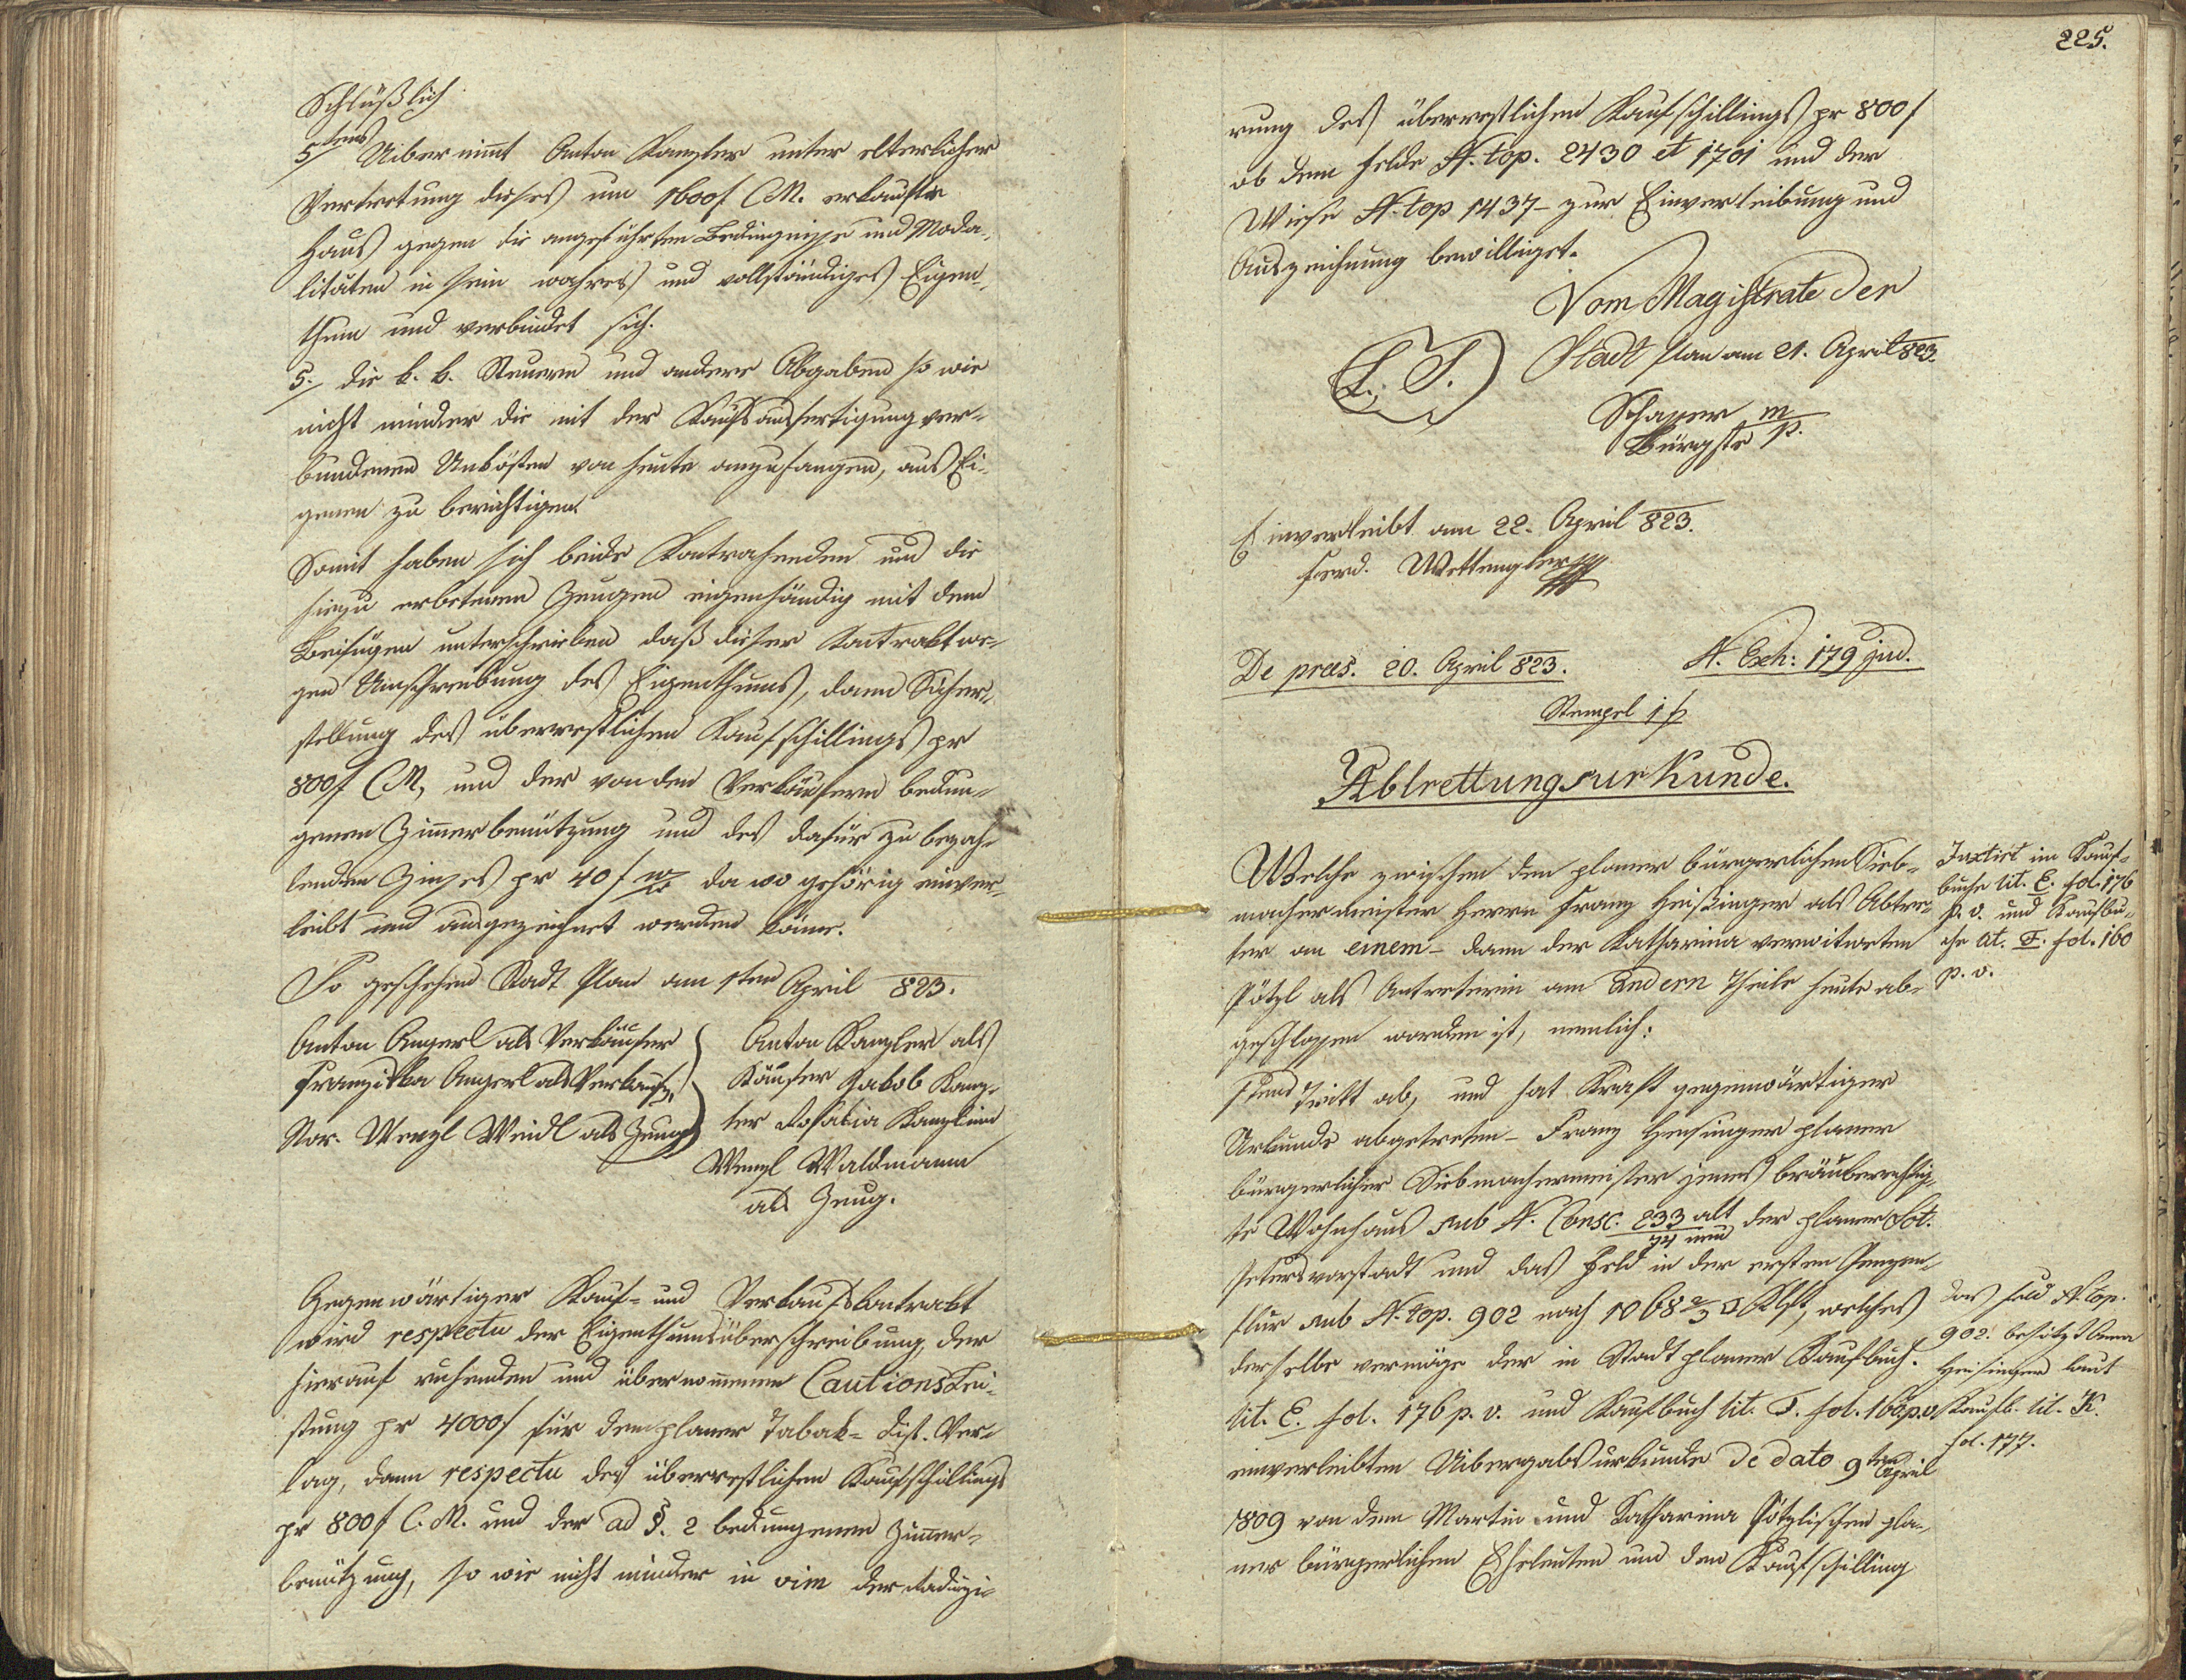 Schlüßlich
5tens Uibernimt Anton Kanzler unter elterlicher
Vertrettung dieses um 1600f CM. erkaufte
Haus gegen die angeführten Bedingnisse und Moda-
litäten in sein wahres und vollständiges Eigen-
thum und verbindet sich.
5./ die k. k. Steuern und andere Abgaben so wie
nicht minder die mit der Kaufsausfertigung ver-
bundenen Unkösten von heute anzufangen, aus Ei-
genen zu berichtigen.
Somit haben sich beide Kontrahenden und die
hiezu erbetenen Zeugen eigenhändig mit dem
Beifügen unterschrieben daß dieser Kontrakt we-
gen Umschreibung des Eigenthums, dann Sicher-
stellung des überrestlichen Kaufschillings pr
800f CM, und der von den Verkäufern bedun-
genen Zimerbenützung und des dafür zu bezah-
lenden Zinses pr 40 f da wo gehörig einver-
leibt und ausgezeichnet werden könne.
So geschehen Stadt Plan am 1ten April 823.
Anton Angerl als Verkäufer
Franziska Angerl als Verkäufn.
Nor. Wenzl Weidl als Zeug
Anton Kanzler als
Käufer Jakob Kanz-
ler Rosalia Kanzlerin
Wenzl Waldmann
als Zeug.
Gegenwärtiger Kauf- und Verkaufskontrakt
wird respectu der Eigenthumsüberschreibung, der
hierauf ruhenden und übernommenen Cautionslei-
stung pr 4000f für den planer Tabak- Dist. Ver-
lag, dann respectu des überrestlichen Kaufschillings
pr 800f C.M. und der ad §. 2 bedungenen Zimer-
benützung, so wie nicht minder in vim der Radizi-
225.
rung des überrestlichen Kaufschillings pr 800f
ob dem Felde N. top. 2430 et 1701 und der
Wiese N. top 1437 - zur Einverleibung und
Auszeichnung bewilliget.
Vom Magistrate der
Stadt Plan am 21. April 823.
L. S.
Schaper m/p.
Bürgstr
Einverleibt am 22. April 823.
Ferd. Wettengler
De præs. 20. April 823.
N. Exh: 179 jud.
Stempel 1 f
Abtrettungsurkunde.
Welche zwischen dem planer bürgerlichen Sieb-
machermeister Herrn Franz Heißinger als Abtre-
ter an einem - dann der Katharina verwitweten
Pötzl als Antreterin am andern Theile heute ab-
geschlossen worden ist, nemlich:
1tens Tritt ab, und hat Kraft gegenwärtiger
Urkunde abgetreten - Franz Heisinger planer
bürgerlicher Siebmachermeister jenes bräuberechtig-
te Wohnhaus sub N. Consc. 233 alt / 74 neu der planer Sct.
Petersvorstadt und das Feld in der ersten
flur sub N. top. 902 nach 1068 2/3 □ Klft, welches
derselbe vermöge der in Stadt planer Kaufbuch.
lit. E. fol. 176 p. v. und Kaufbuch lit. F. fol. 160 p. v
einverleibten Uibergabsurkunde de dato 9ten April
1809 von dem Martin und Katharina Pötzlischen pla-
ner bürgerlichen Eheleuten um den Kaufschilling
Intctirt im Kauf-
buche lit. E. fol. 176
p. v. und Kaufbu-
che lit. F. fol. 160
p. v.
Das Feld N. top.
902. besitzt Anna
Heisinger laut
Kaufb. lit. K.
fol. 177.